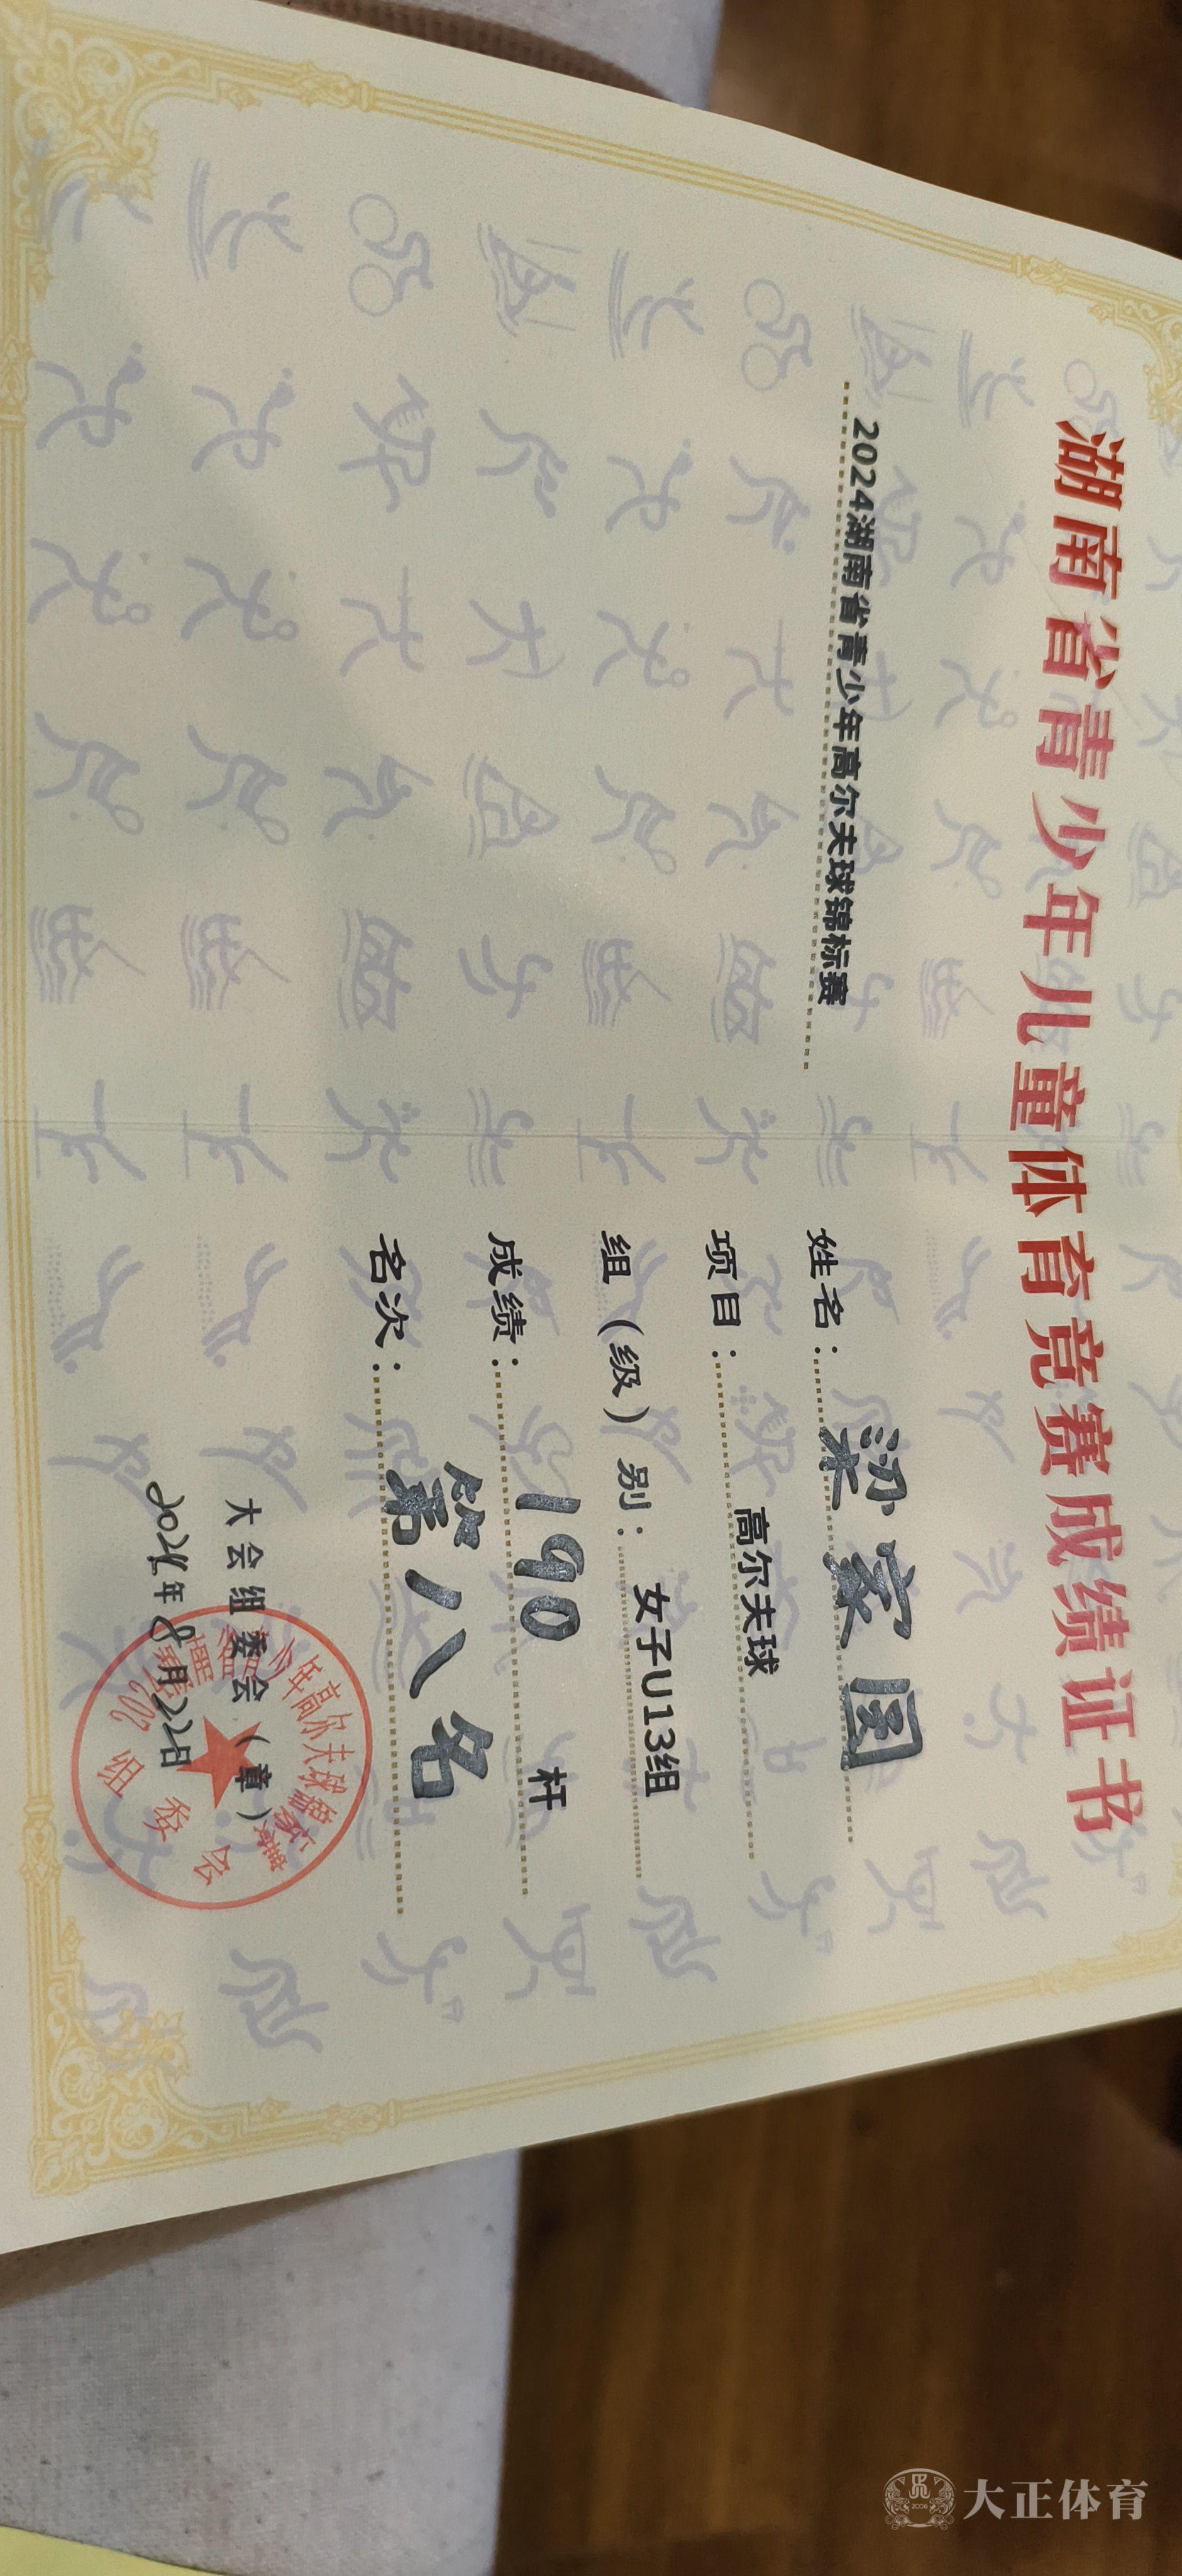 湖南省青少年儿童体育竞赛成绩证书
2024湖南省青少年高尔夫球锦标赛
姓名：梁家园
项目：高尔夫球
组（级）别：女子U13组
成绩：190 杆
名次：第八名
大会组委会（章）
2024年8月22日
组委会
大正体育